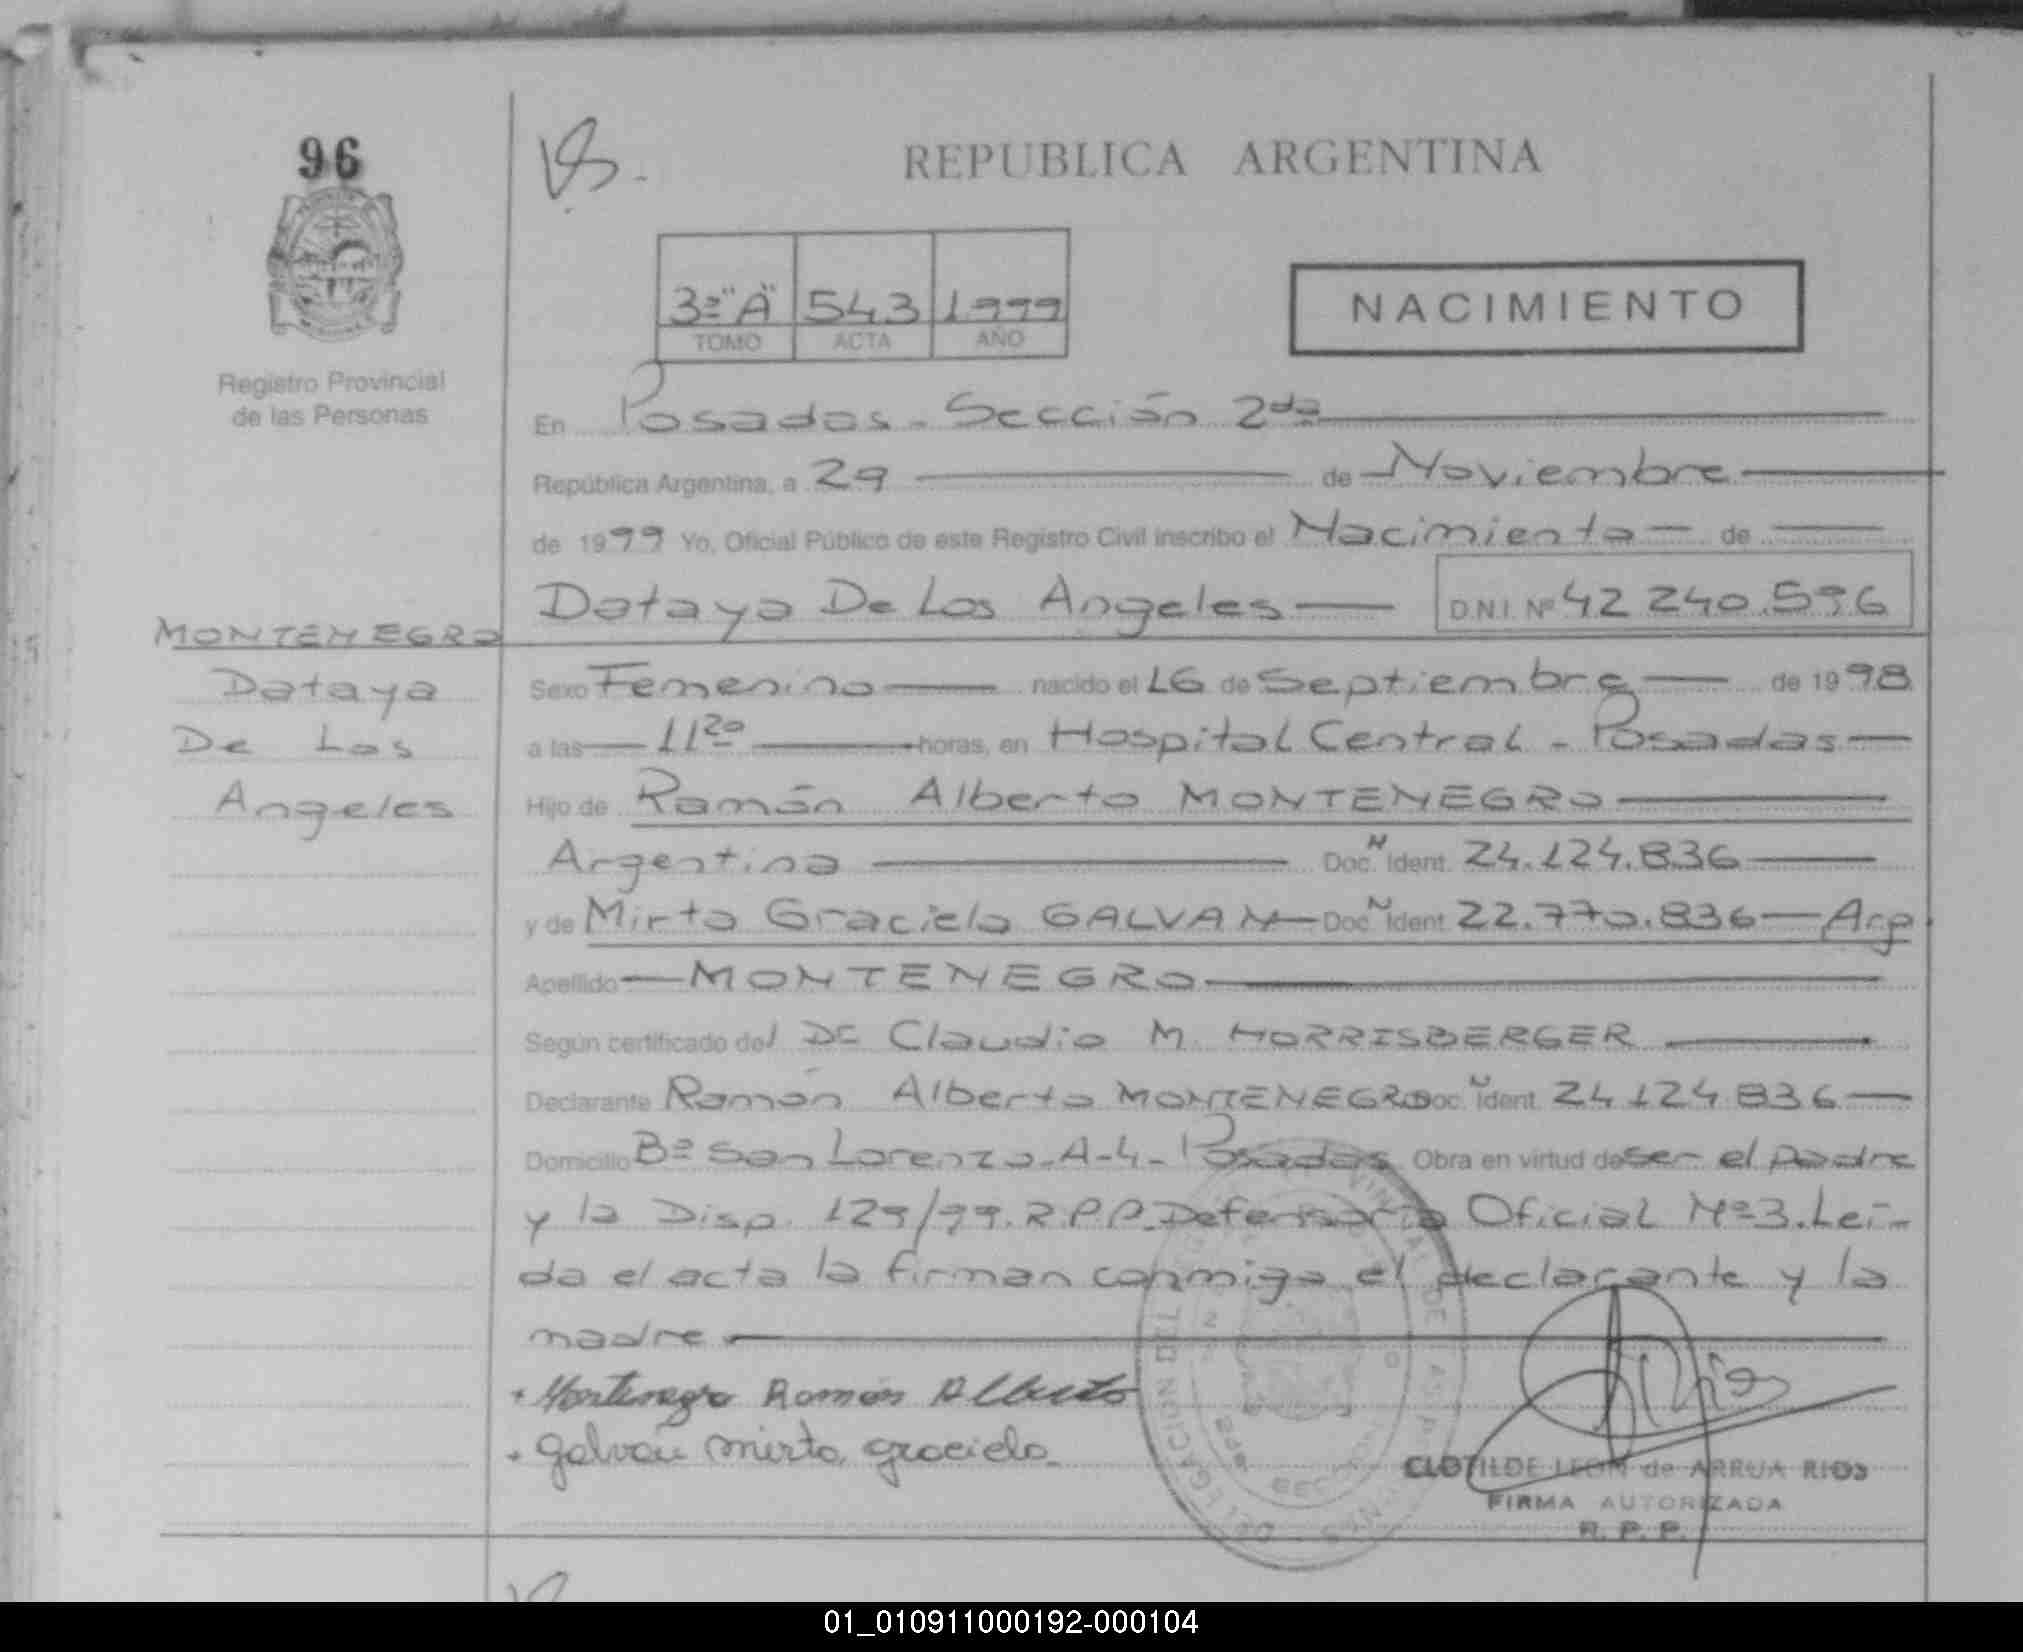 96
REPUBLICA ARGENTINA
3º "A" 543 1999
TOMO ACTA AÑO
NACIMIENTO
Registro Provincial
de las Personas
En Posadas - Sección 2da
República Argentina, a 29 de Noviembre
de 1999 Yo, Oficial Público de este Registro Civil inscribo el Nacimiento de
Dataya De Los Angeles D.N.I. Nº 42 240.596
MONTENEGRO
Dataya
De Los
Angeles
Sexo Femenino nacido el 16 de Septiembre de 1998
a las 11 20 horas, en Hospital Central - Posadas
Hijo de Ramón Alberto MONTENEGRO
Argentina Doc. N Ident. 24.124.836
y de Mirta Graciela GALVAN Doc. N Ident. 22.770.836 Arg
Apellido MONTENEGRO
Según certificado del Dr Claudio M. HORRISBERGER
Declarante Ramón Alberto MONTENEGRO Doc. N Ident. 24 124 836
Domicilio Bº San Lorenzo - A-4 - Posadas Obra en virtud de ser el padre
y la Disp. 129/99. R.P.P. Defensoría Oficial Nº 3. Leí-
da el acta la firman conmigo el declarante y la
madre
Montenegro Ramón Alberto
Galvan mirta graciela
CLOTILDE LEON de ARRUA RIOS
FIRMA AUTORIZADA
R. P. P.
01_010911000192-000104